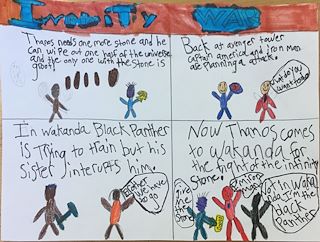 Infinity WAR
Thanos needs one more stone and he
can wipe out one half of the universe
and the only one with the stone is
groot!
Back at avenger tower
captain america and iron man
are planning a attack.
what do you
want today
In wakanda Black Panther
is Trying to train but his
sister interupts him.
Brother
we have
to go
Now Thanos comes
to wakanda for
the fight of the infinity
Stone.
Give
me the
Stone
Not in Waka
nda I'm the
black
Panther